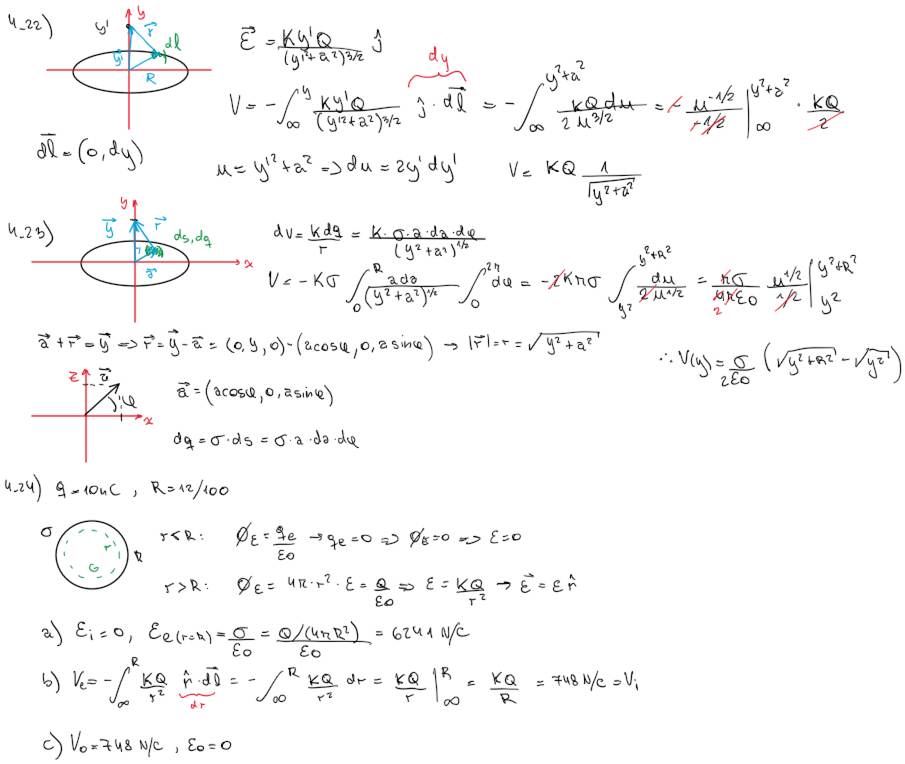 4_22)
y
y'
r⃗
dl
y⃗'
R
ε⃗ = Ky'Q/(y'²+a²)^3/2 ĵ
dy
V = -∫_∞^y Ky'Q/(y'²+a²)^3/2 ĵ · dl⃗ = -∫_∞^(y²+a²) KQdu/2u^3/2 = - u^-1/2/-1/2 |_∞^(y²+a²) · KQ/2
dl⃗ = (0, dy)
u = y'² + a² => du = 2y' dy'
V = KQ 1/√(y²+a²)
4_23)
y
y⃗
r⃗
ds, dq
a⃗
x
dv = Kdq/r = K·σ·a·da·dφ/(y²+a²)^1/2
V = -Kσ ∫_0^R ada/(y²+a²)^1/2 ∫_0^2π dφ = -2Kπσ ∫_y²^(y²+R²) du/2u^1/2 = πσ/4πε0 u^1/2/1/2 |_y²^(y²+R²)
2
a⃗ + r⃗ = y⃗ => r⃗ = y⃗ - a⃗ = (0, y, 0) - (acosφ, 0, asinφ) → |r⃗| = r = √(y²+a²)
∴ V(y) = σ/2ε0 (√(y²+R²) - √y²)
z
a⃗
φ
x
a⃗ = (acosφ, 0, asinφ)
dq = σ·ds = σ·a·da·dφ
4_24) q = 10nC , R = 12/100
σ
r
G
R
r<R: ∅ε = qe/ε0 → qe = 0 => ∅ε = 0 => ε = 0
r>R: ∅ε = 4π·r²·ε = Q/ε0 => ε = KQ/r² → ε⃗ = ε r̂
a) εi = 0, εe(r=R) = σ/ε0 = Q/(4πR²)/ε0 = 6241 N/C
b) Ve = -∫_∞^R KQ/r² r̂·dl⃗ = -∫_∞^R KQ/r² dr = KQ/r |_∞^R = KQ/R = 748 N/C = Vi
dr
c) V0 = 748 N/C , ε0 = 0